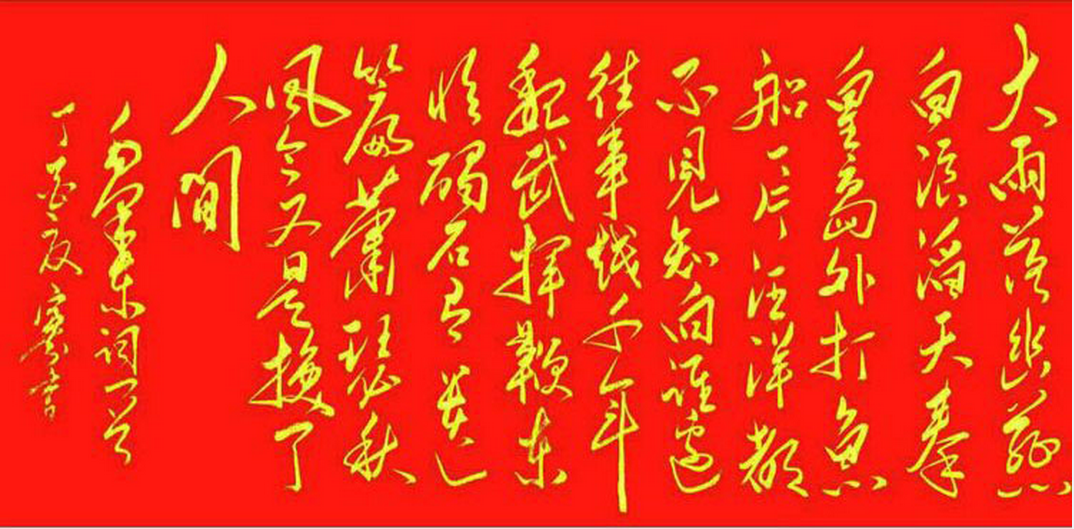 大雨落幽燕
白浪滔天秦
皇岛外打鱼
船一片汪洋都
不見知向谁边
往事越千年
魏武揮鞭東
临碣石有遗
篇蕭瑟秋
風今又是换了
人間
毛泽东词一首
丁酉夏 书